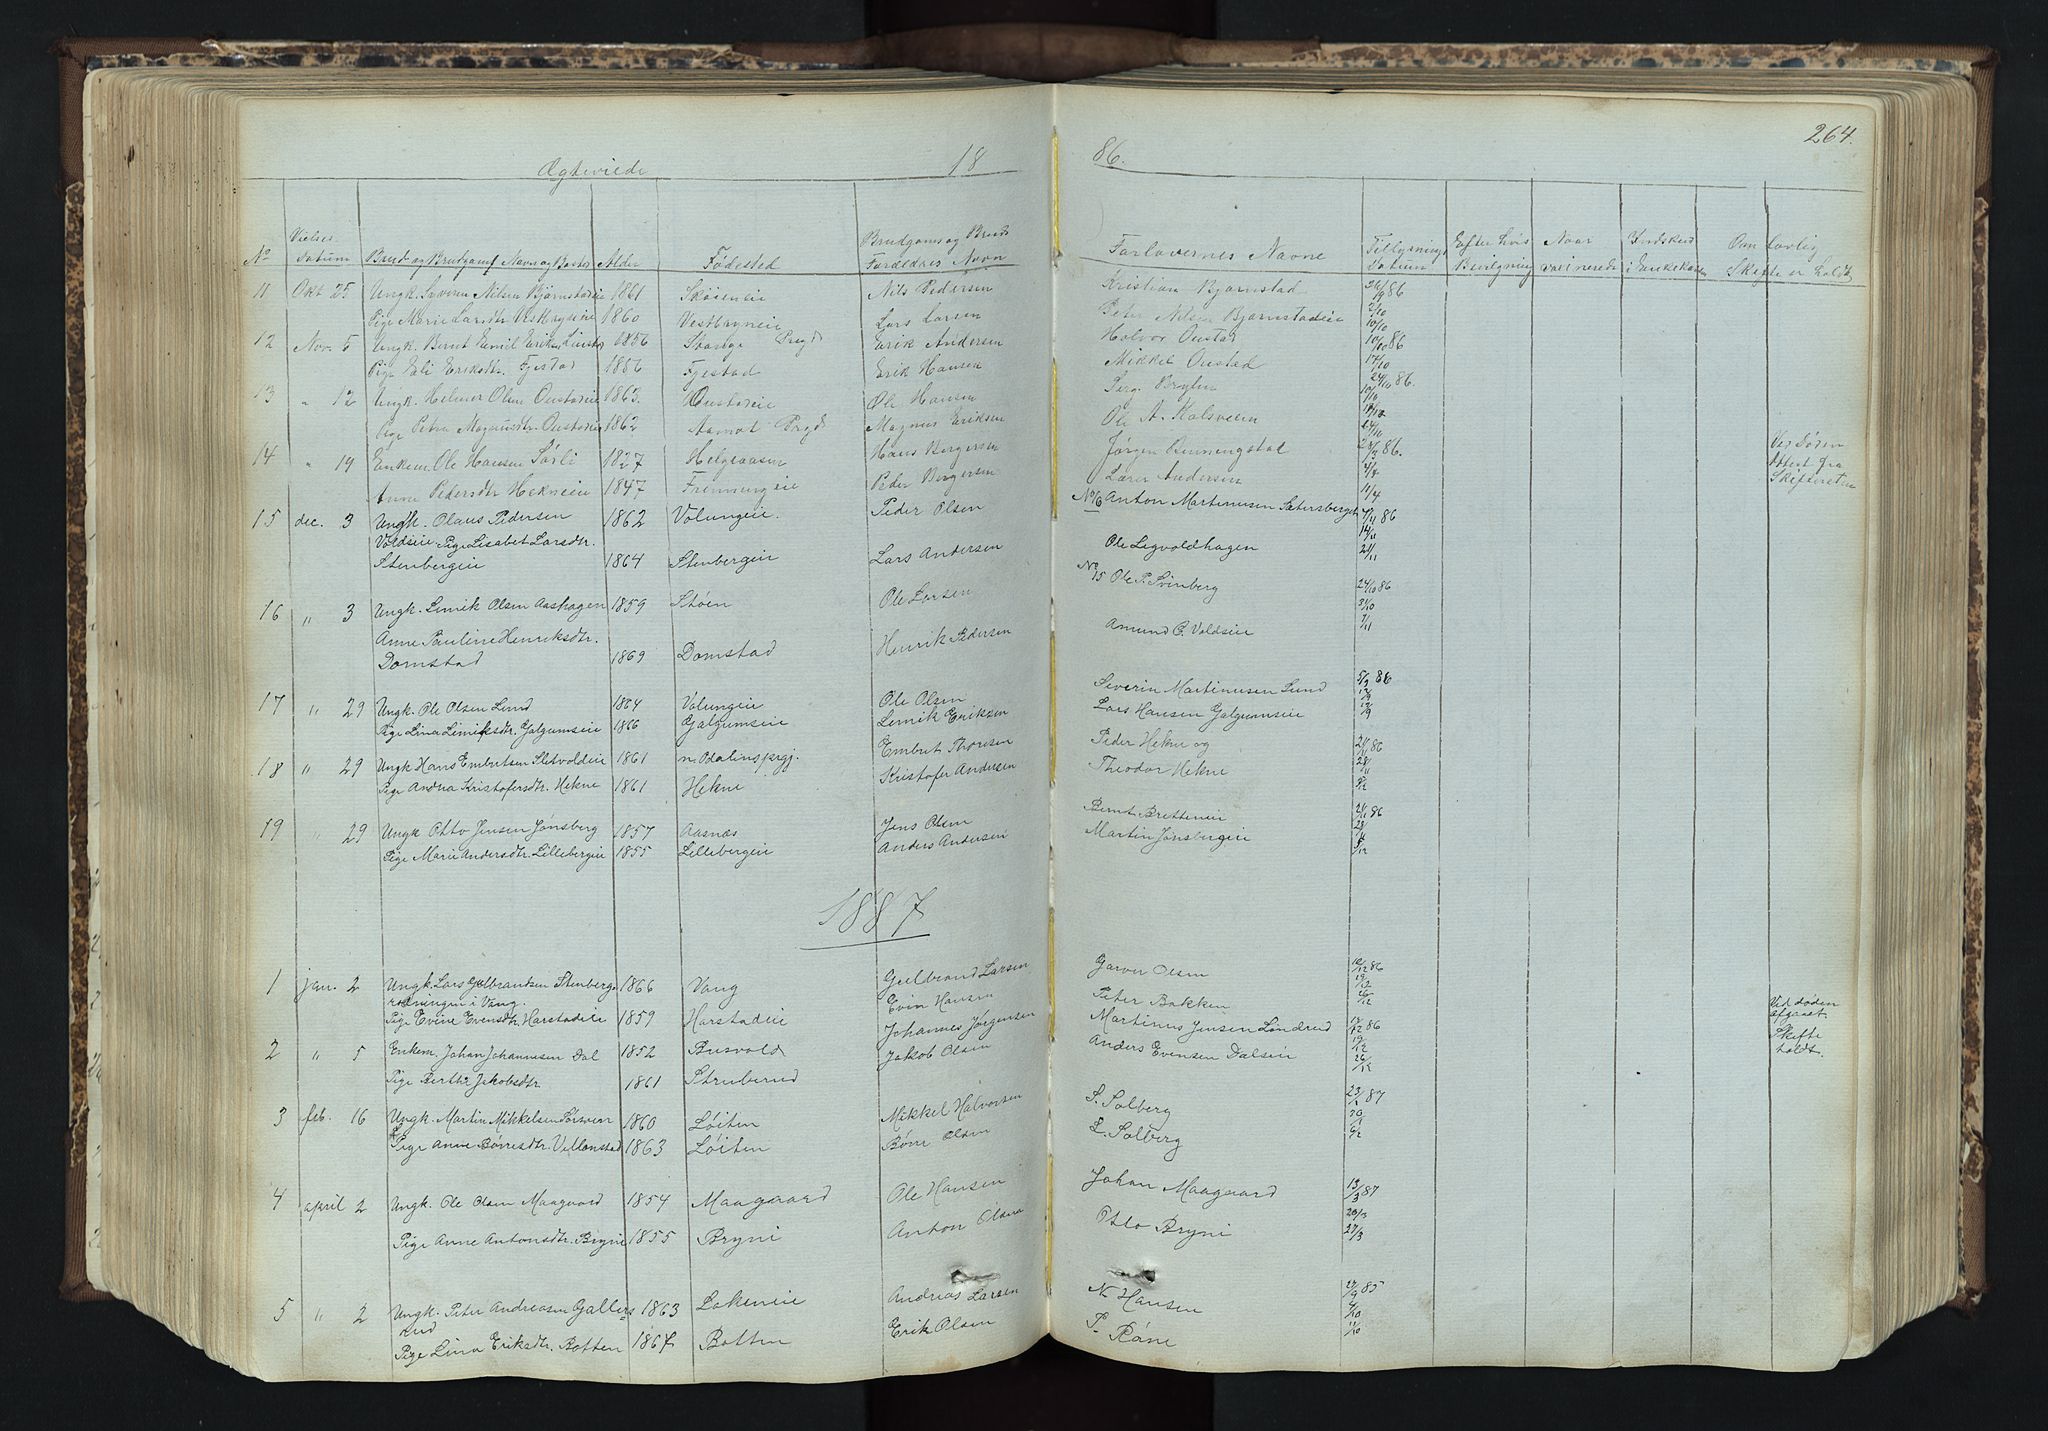 264.
Ægteviede 18 86.
No Vielses Datum Brud og Brudgoms Navn og Bosted Alder Fødested Brudgoms og Bruds Forældres Navn Forlovernes Navne Tillysnings Datum Efter hvis Bevilgning Naar vaccinerede Indskud i Enkekassen Om Lovlig Skifte er holdt
11 Okt 25 Ungk. Severin Nilsen Bjørnstadeie 1861 Skøieneie Nils Pedersen Kristian Bjørnstad 26/9 86
Pige Marie Larsdtr Vestbryneie 1860 Vestbryneie Lars Larsen Peter Nilsen Bjørnstadeie 3/10 10/10
12 Nov. 5 Ungk. Bernt Emil Eriksen 1856 Stange Prgd Erik Andersen Halvor Oustad 10/10 86
Pige Eli Eriksdtr. Fjestad 1856 Fjestad Erik Hansen Mikkel Oustad 17/10 24/10
13 " 12 Ungk. Helmer Olsen Oustadeie 1863. Oustadeie Ole Hansen 86.
Pige Petra Magnusdtr. Oustadeie 1862 Aamot Prgd Magnus Eriksen Ole A. Kolsveen 24/10
14 " 19 Enkem. Ole Hansen Sørli 1827 Helgeaasen Hans Børgersen Jørgen Benningstad 86. Ved Døden
Attest fra
Anne Pedersdtr Hekneie 1847 Frenningeie Peder Børgersen Lars Andersen 11/4 Skifteretten
15 dec. 3 Ungk. Olaus Pedersen 1862 Volungeie. Peder Olsen No 16 Anton Martinusen Sætersberget 7/11 86
Voldseie. Pige Lisabet Larsdtr. 14/11
Stenbergeie 1864 Stenbergeie Lars Andersen Ole Ligvoldhagen 21/11
No 15 Ole P. Svinberg 24/10 86
16 " 3 Ungk. Lemik Olsen Aashagen 1859 Støen Ole Larsen 31/10
Anne Pauline Henriksdtr. Amund O. Voldseie 7/11
Domstad 1869 Domstad Henrik Pedersen
17 " 29 Ungk. Ole Olsen Lund 1864 Volungeie Ole Olsen Severin Martinusen Lund 5/9 86
Pige Lina Lemiksdtr. Galgumseie 1866 Galgumseie Lemik Eriksen Lars Hansen Galgumseie 12/9 19/9
18 " 29 Ungk Hans Embretsen Sletvoldeie 1861 n. Odalins prgj. Embret Thoresen Peder Hekne og 21/11 86
Pige Andrea Kristofersdtr. Hekne 1861 Hekne Kristofer Andersen Theodor Hekne 28/11 5/12
19 " 29 Ungk Otto Jensen Jønsberg 1857 Aasnæs Jens Olsen Bernt Bretteneie 21/11 86
Pige Marie Andersdtr. Lillebergeie 1855 Lillebergeie Anders Andersen Martin Jønsbergeie 28/11 5/12
1887
1 jan. 2 Ungk. Lars Gulbrandsen Stenbergs- 1866 Vang Gulbrand Larsen Garver Olsen 12/12 86
rødningen i Vang. 19/12
Pige Evine Evensdtr. Harstadeie 1859 Harstadeie Even Hansen Peter Bakken 26/12 Ved døden
2 " 5 Enkem. Johan Johannesen Dal 1852 Busvold Johannes Jørgensen Martinus Jensen Løndrud 12/12 86 afgaaet.
Pige Berthe Jakobsdtr 1861 Struberud Jakob Olsen Anders Evensen Dalseie 19/12 26/12 Skifte
holdt.
3 feb. 16 Ungk. Martin Mikkelsen Sørsveen 1860 Løiten Mikkel Halvorsen S. Solberg 23/1 87
Pige Anne Børresdtr. Vellenstad 1863 Løiten Børre Olsen L. Solberg 30/1 6/2
4 april 2 Ungk. Ole Olsen Maagaard 1854 Maagaard Ole Hansen Johan Maagaard 13/3 87
Pige Anne Antonsdtr. Bryni 1855 Bryni Anton Olsen Otto Bryni 20/3 27/3
5 " 2 Ungk. Peter Andreasen Gallerud 1863 Lokeneie Andreas Larsen N. Hansen 27/9 85
Pige Lina Eriksdtr. Botten 1867 Botten Erik Olsen S. Røne 4/10 11/10